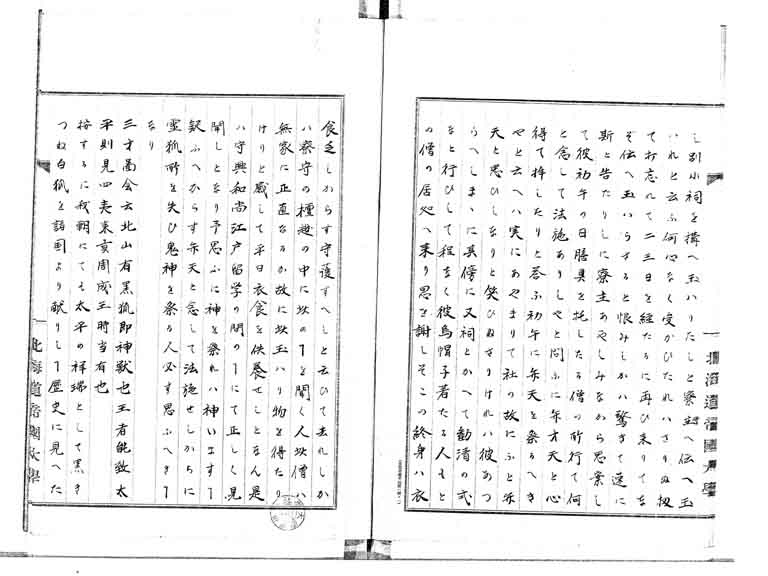 し別小祠を構へ玉ハりたしと寮主へ伝へ玉
いれと云ふ何心なく受かひたれハさりぬ扨
て打忘れて二三日を経たるに再ひ来りてな
そ伝へ玉いらすると恨みしかハ驚きて速に
斯と告たりしに寮主あやしみなから思案し
て彼初午の日膳具を托したる僧の所行て何
と念して法施ありしやと問ふに弁才天と心
得て捧したりと答ふ初午に弁天を祭るへき
やと云へハ実にあやまりて社の故にふと弁
天と思ひしなりと笑ひぬさりけれハ彼あつ
らへしまゝに其傍に又祠とかへて勧清の式
なと行ひして程なく彼烏帽子着たる人もと
の僧の居処へ来り恩を謝しそこの終身ハ衣
食乏しからす守護すへしと云ひて去れしか
ハ泰守の檀越の中に坎の丁を聞く人坎僧ハ
無家に正直なるか故に坎玉ハり物を得たり
けりと感して平日衣食を供養せしとなん是
ハ守興和尚江戸留学の間の丁にて正しく見
聞しとなり予思ふに神を祭れハ神います丁
疑ふへからす弁天と念して法施せしからに
霊狐所を失ひ鬼神を祭る人必す思ふへき丁
なり
三才圖会云北山有黒狐即神獣也王者能致太
平則見四夷来貢周成王時当有也
按するに我朝にても太平の祥瑞として黒き
つね白狐を諸国より献りし丁歴史に見へた
北海道帝國大學
北海道帝國大學